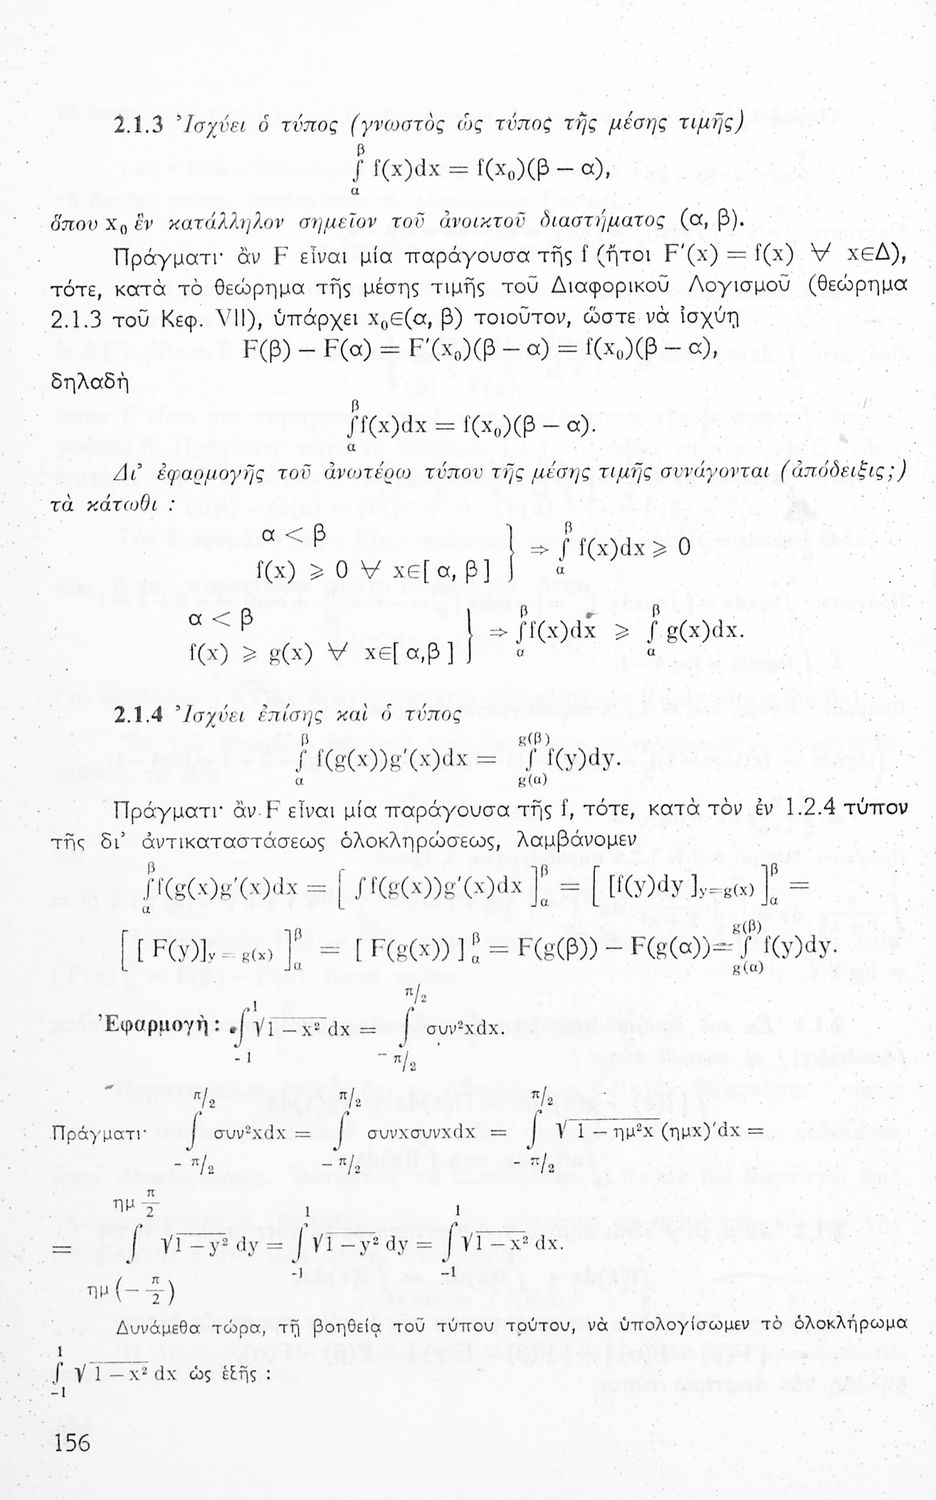 2.1.3 Ἰσχύει ὁ τύπος (γνωστὸς ὡς τύπος τῆς μέσης τιμῆς)
∫_α^β f(x)dx = f(x₀)(β − α),
ὅπου x₀ ἓν κατάλληλον σημεῖον τοῦ ἀνοικτοῦ διαστήματος (α, β).
Πράγματι· ἂν F εἶναι μία παράγουσα τῆς f (ἤτοι F′(x) = f(x) ∀ x∈Δ),
τότε, κατὰ τὸ θεώρημα τῆς μέσης τιμῆς τοῦ Διαφορικοῦ Λογισμοῦ (θεώρημα
2.1.3 τοῦ Κεφ. VII), ὑπάρχει x₀∈(α, β) τοιοῦτον, ὥστε νὰ ἰσχύῃ
F(β) − F(α) = F′(x₀)(β − α) = f(x₀)(β − α),
δηλαδὴ
∫_α^β f(x)dx = f(x₀)(β − α).
Δι’ ἐφαρμογῆς τοῦ ἀνωτέρω τύπου τῆς μέσης τιμῆς συνάγονται (ἀπόδειξις;)
τὰ κάτωθι :
α < β
f(x) ⩾ 0 ∀ x∈[α, β] } ⇒ ∫_α^β f(x)dx ⩾ 0
α < β
f(x) ⩾ g(x) ∀ x∈[α,β] } ⇒ ∫_α^β f(x)dx ⩾ ∫_α^β g(x)dx.
2.1.4 Ἰσχύει ἐπίσης καὶ ὁ τύπος
∫_α^β f(g(x))g′(x)dx = ∫_{g(α)}^{g(β)} f(y)dy.
Πράγματι· ἂν F εἶναι μία παράγουσα τῆς f, τότε, κατὰ τὸν ἐν 1.2.4 τύπον
τῆς δι’ ἀντικαταστάσεως ὁλοκληρώσεως, λαμβάνομεν
∫_α^β f(g(x)g′(x)dx = [ ∫f(g(x))g′(x)dx ]_α^β = [ [f(y)dy]_{y=g(x)} ]_α^β =
[ [ F(y)]_{y=g(x)} ]_α^β = [ F(g(x)) ]_α^β = F(g(β)) − F(g(α)) = ∫_{g(α)}^{g(β)} f(y)dy.
Ἐφαρμογὴ : ∫_{-1}^{1} √1 − x² dx = ∫_{−π/2}^{π/2} συν²xdx.
Πράγματι· ∫_{−π/2}^{π/2} συν²xdx = ∫_{−π/2}^{π/2} συνxσυνxdx = ∫_{−π/2}^{π/2} √1 − ημ²x (ημx)′dx =
= ∫_{ημ(−π/2)}^{ημ π/2} √1 − y² dy = ∫_{-1}^{1} √1 − y² dy = ∫_{-1}^{1} √1 − x² dx.
Δυνάμεθα τώρα, τῇ βοηθείᾳ τοῦ τύπου τούτου, νὰ ὑπολογίσωμεν τὸ ὁλοκλήρωμα
∫_{−1}^{1} √1 − x² dx ὡς ἑξῆς :
156